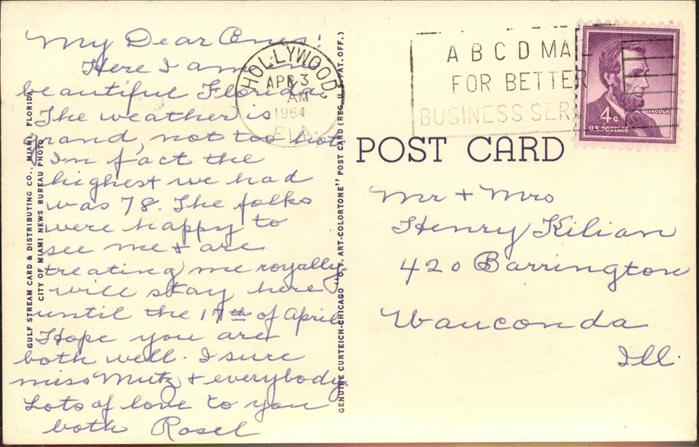 My Dear Ones:
Here I am in
beautiful Florida.
The weather is
grand, not too hot
In fact the
highest we had
was 78. The folks
were happy to
see me & are
treating me royally
will stay here
until the 17th of April
Hope you are
both well. I sure
miss Mutz & everybody
Lots of love to you
both Rosel
GULF STREAM CARD & DISTRIBUTING CO., MIAMI, FLORIDA
CITY OF MIAMI NEWS BUREAU PHOTO
GENUINE CURTEICH-CHICAGO "C.T. ART-COLORTONE" POST CARD (REG. U.S. PAT. OFF.)
HOLLYWOOD
APR 3
AM
1964
FLA.
A B C D MAIL
FOR BETTER
BUSINESS SER
LINCOLN
4¢
U.S. POSTAGE
POST CARD
Mr + Mrs
Henry Kilian
420 Barrington
Wauconda
Ill.